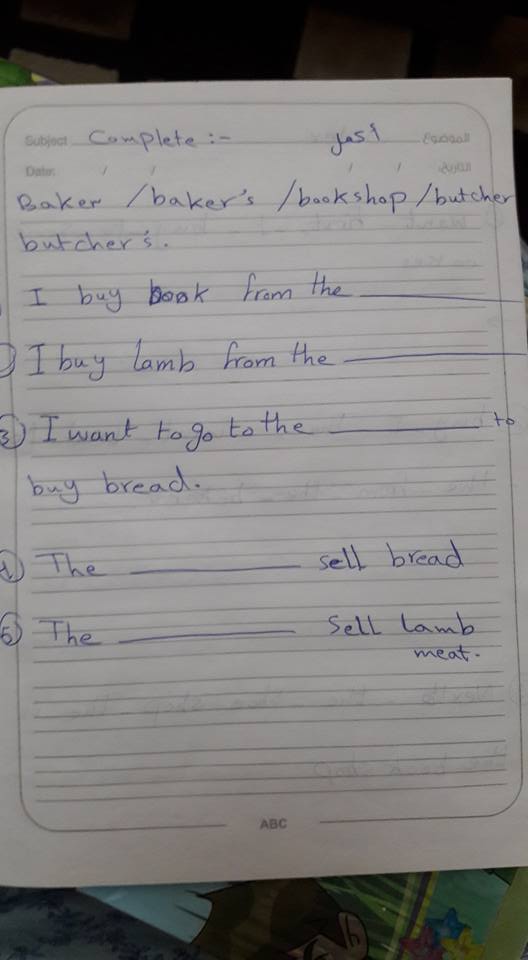 Subject Complete :- أكمل الموضوع
Date: / / / / التاريخ
Baker / baker's / bookshop / butcher
butcher's.
I buy book from the
I buy lamb from the
3 I want to go to the to
buy bread.
The sell bread
5 The sell lamb
meat.
ABC